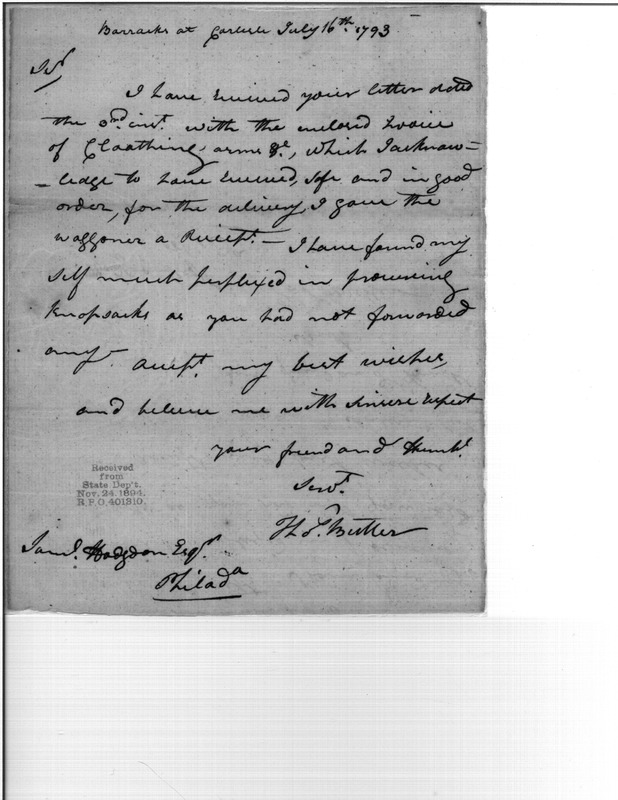 Barracks at Carlisle July 16th. 1793
Sir
I have received your letter dated
the 3rd inst. with the enclosed Invoice
of Cloathing, arms &c, which I acknow=
=ledge to have received, safe and in good
order, for the delivery, I gave the
waggoner a Receipt. — I have found my
self much perplexed in procuring
Knapsacks as you had not forwarded
any. accept. my best wishes,
and believe me with sincere respect
your friend and Humbl.
Servt.
Thos. Butler
Received
from
State Dep't.
Nov. 24. 1894.
R.P.O. 401310.
Saml. Hodgdon Esqr.
Philada